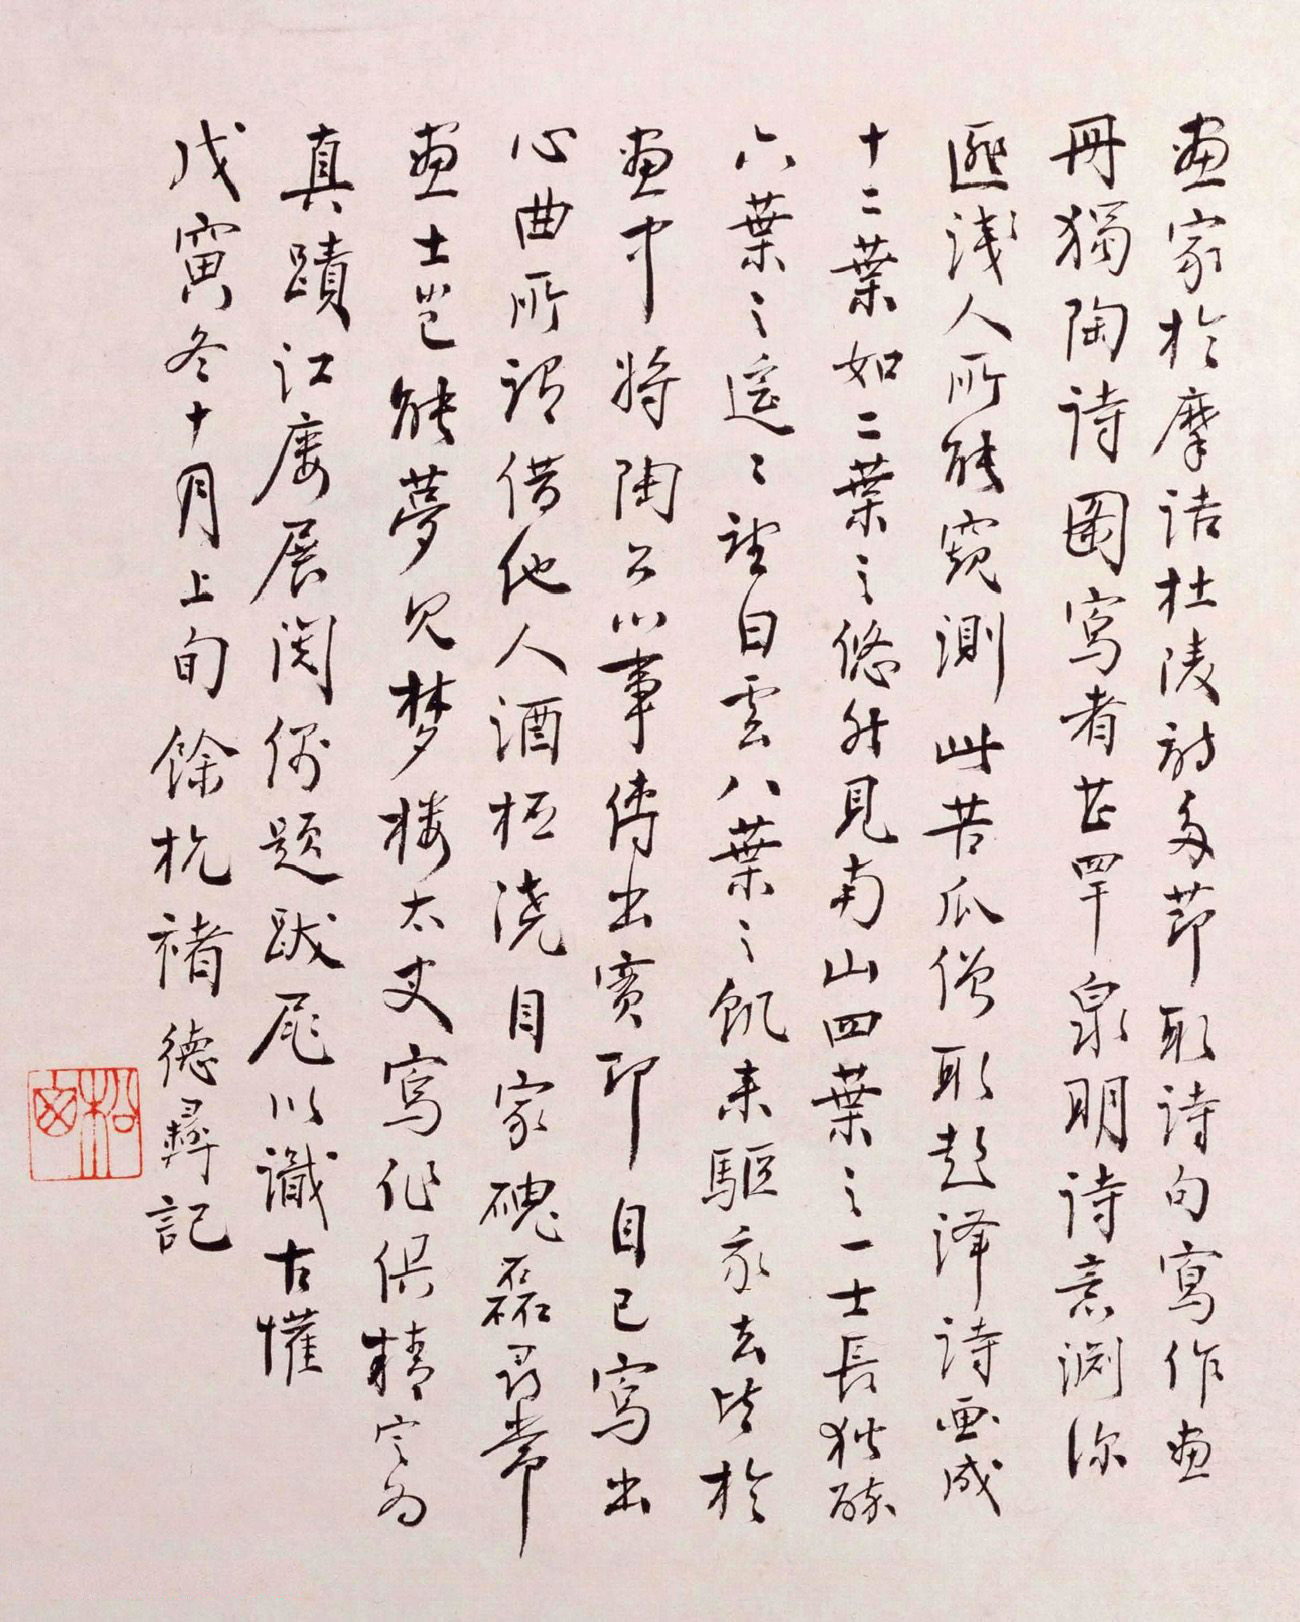 畫家於摩詰杜陵詩多節取詩句寫作畫
冊獨陶詩圖寫者甚罕泉明詩意淵深
匪淺人所能窺測此苦瓜僧取彭澤詩畫成
十二葉如二葉之悠然見南山四葉之一士長獨醉
六葉之遙遙望白雲八葉之飢來驅我去皆於
畫中將陶公心事傳出實即自己寫出
心曲所謂借他人酒杯澆自家磈磊尋常
畫士豈能夢見夢樓太史寫作俱精定為
真蹟江廔展閱偶題跋尾以識古懽
戊寅冬十月上旬餘杭褚德彝記
松窗